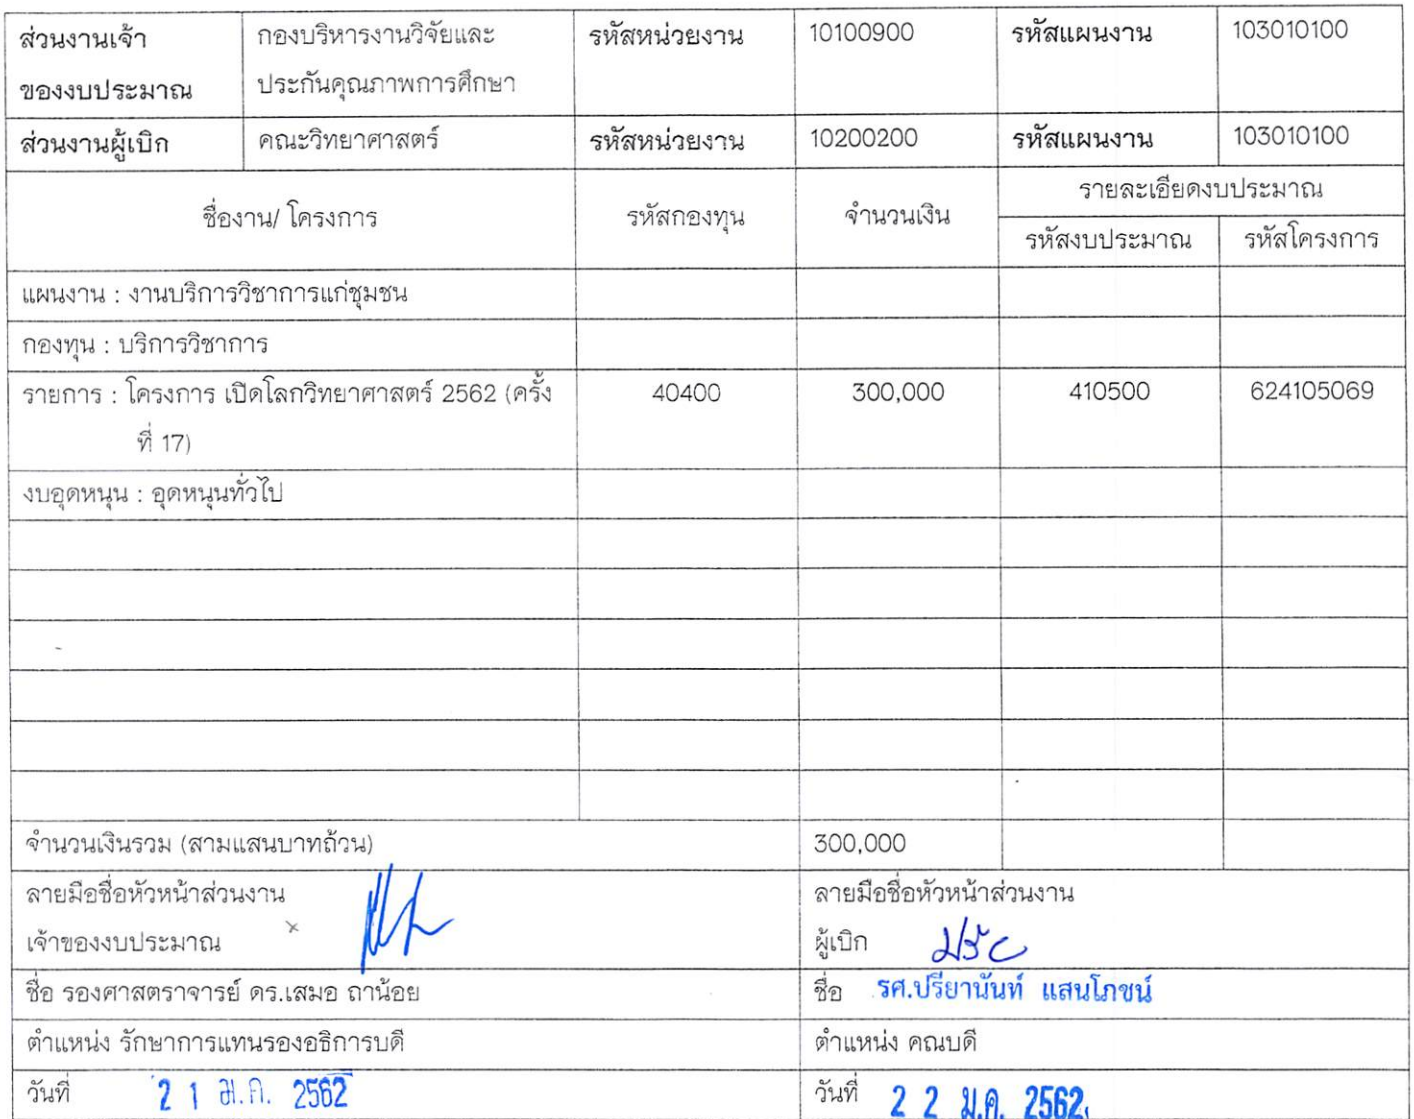 ส่วนงานเจ้า กองบริหารงานวิจัยและ รหัสหน่วยงาน 10100900 รหัสแผนงาน 103010100
ของงบประมาณ ประกันคุณภาพการศึกษา
ส่วนงานผู้เบิก คณะวิทยาศาสตร์ รหัสหน่วยงาน 10200200 รหัสแผนงาน 103010100
ชื่องาน/ โครงการ รหัสกองทุน จำนวนเงิน รายละเอียดงบประมาณ
รหัสงบประมาณ รหัสโครงการ
แผนงาน : งานบริการวิชาการแก่ชุมชน
กองทุน : บริการวิชาการ
รายการ : โครงการ เปิดโลกวิทยาศาสตร์ 2562 (ครั้ง 40400 300,000 410500 624105069
ที่ 17)
งบอุดหนุน : อุดหนุนทั่วไป
จำนวนเงินรวม (สามแสนบาทถ้วน) 300,000
ลายมือชื่อหัวหน้าส่วนงาน ลายมือชื่อหัวหน้าส่วนงาน
เจ้าของงบประมาณ ผู้เบิก
ชื่อ รองศาสตราจารย์ ดร.เสมอ ถาน้อย ชื่อ รศ.ปรียานันท์ แสนโภชน์
ตำแหน่ง รักษาการแทนรองอธิการบดี ตำแหน่ง คณบดี
วันที่ 2 1 ม.ค. 2562 วันที่ 2 2 ม.ค. 2562